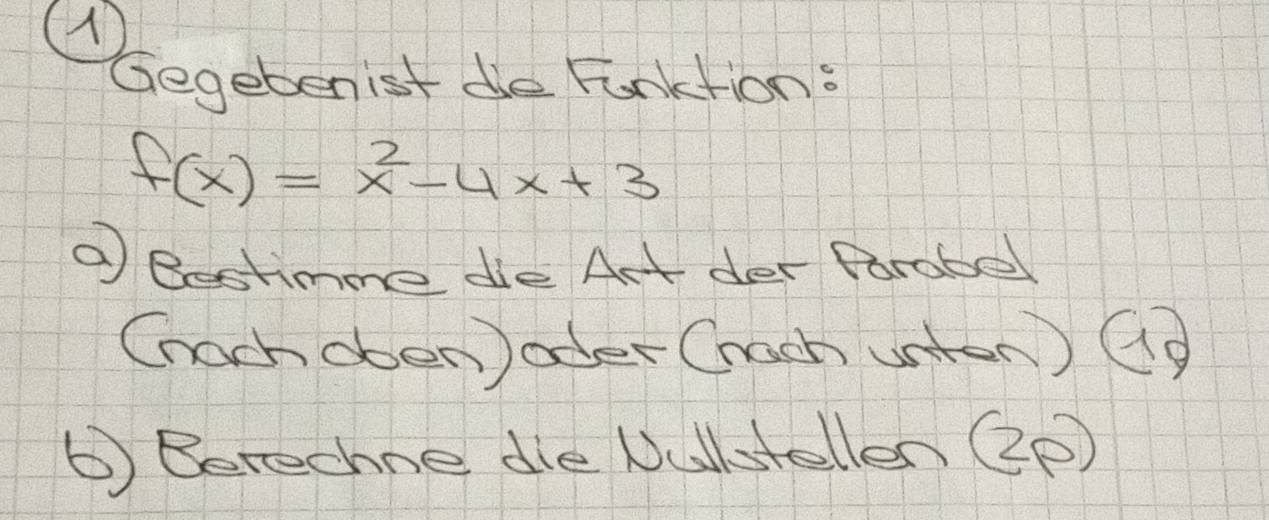 ①
Gegeben ist die Funktion:
f(x) = x² - 4x + 3
a) Bestimme die Art der Parabel
(nach oben) oder (nach unten) (1p)
b) Berechne die Nullstellen (2p)